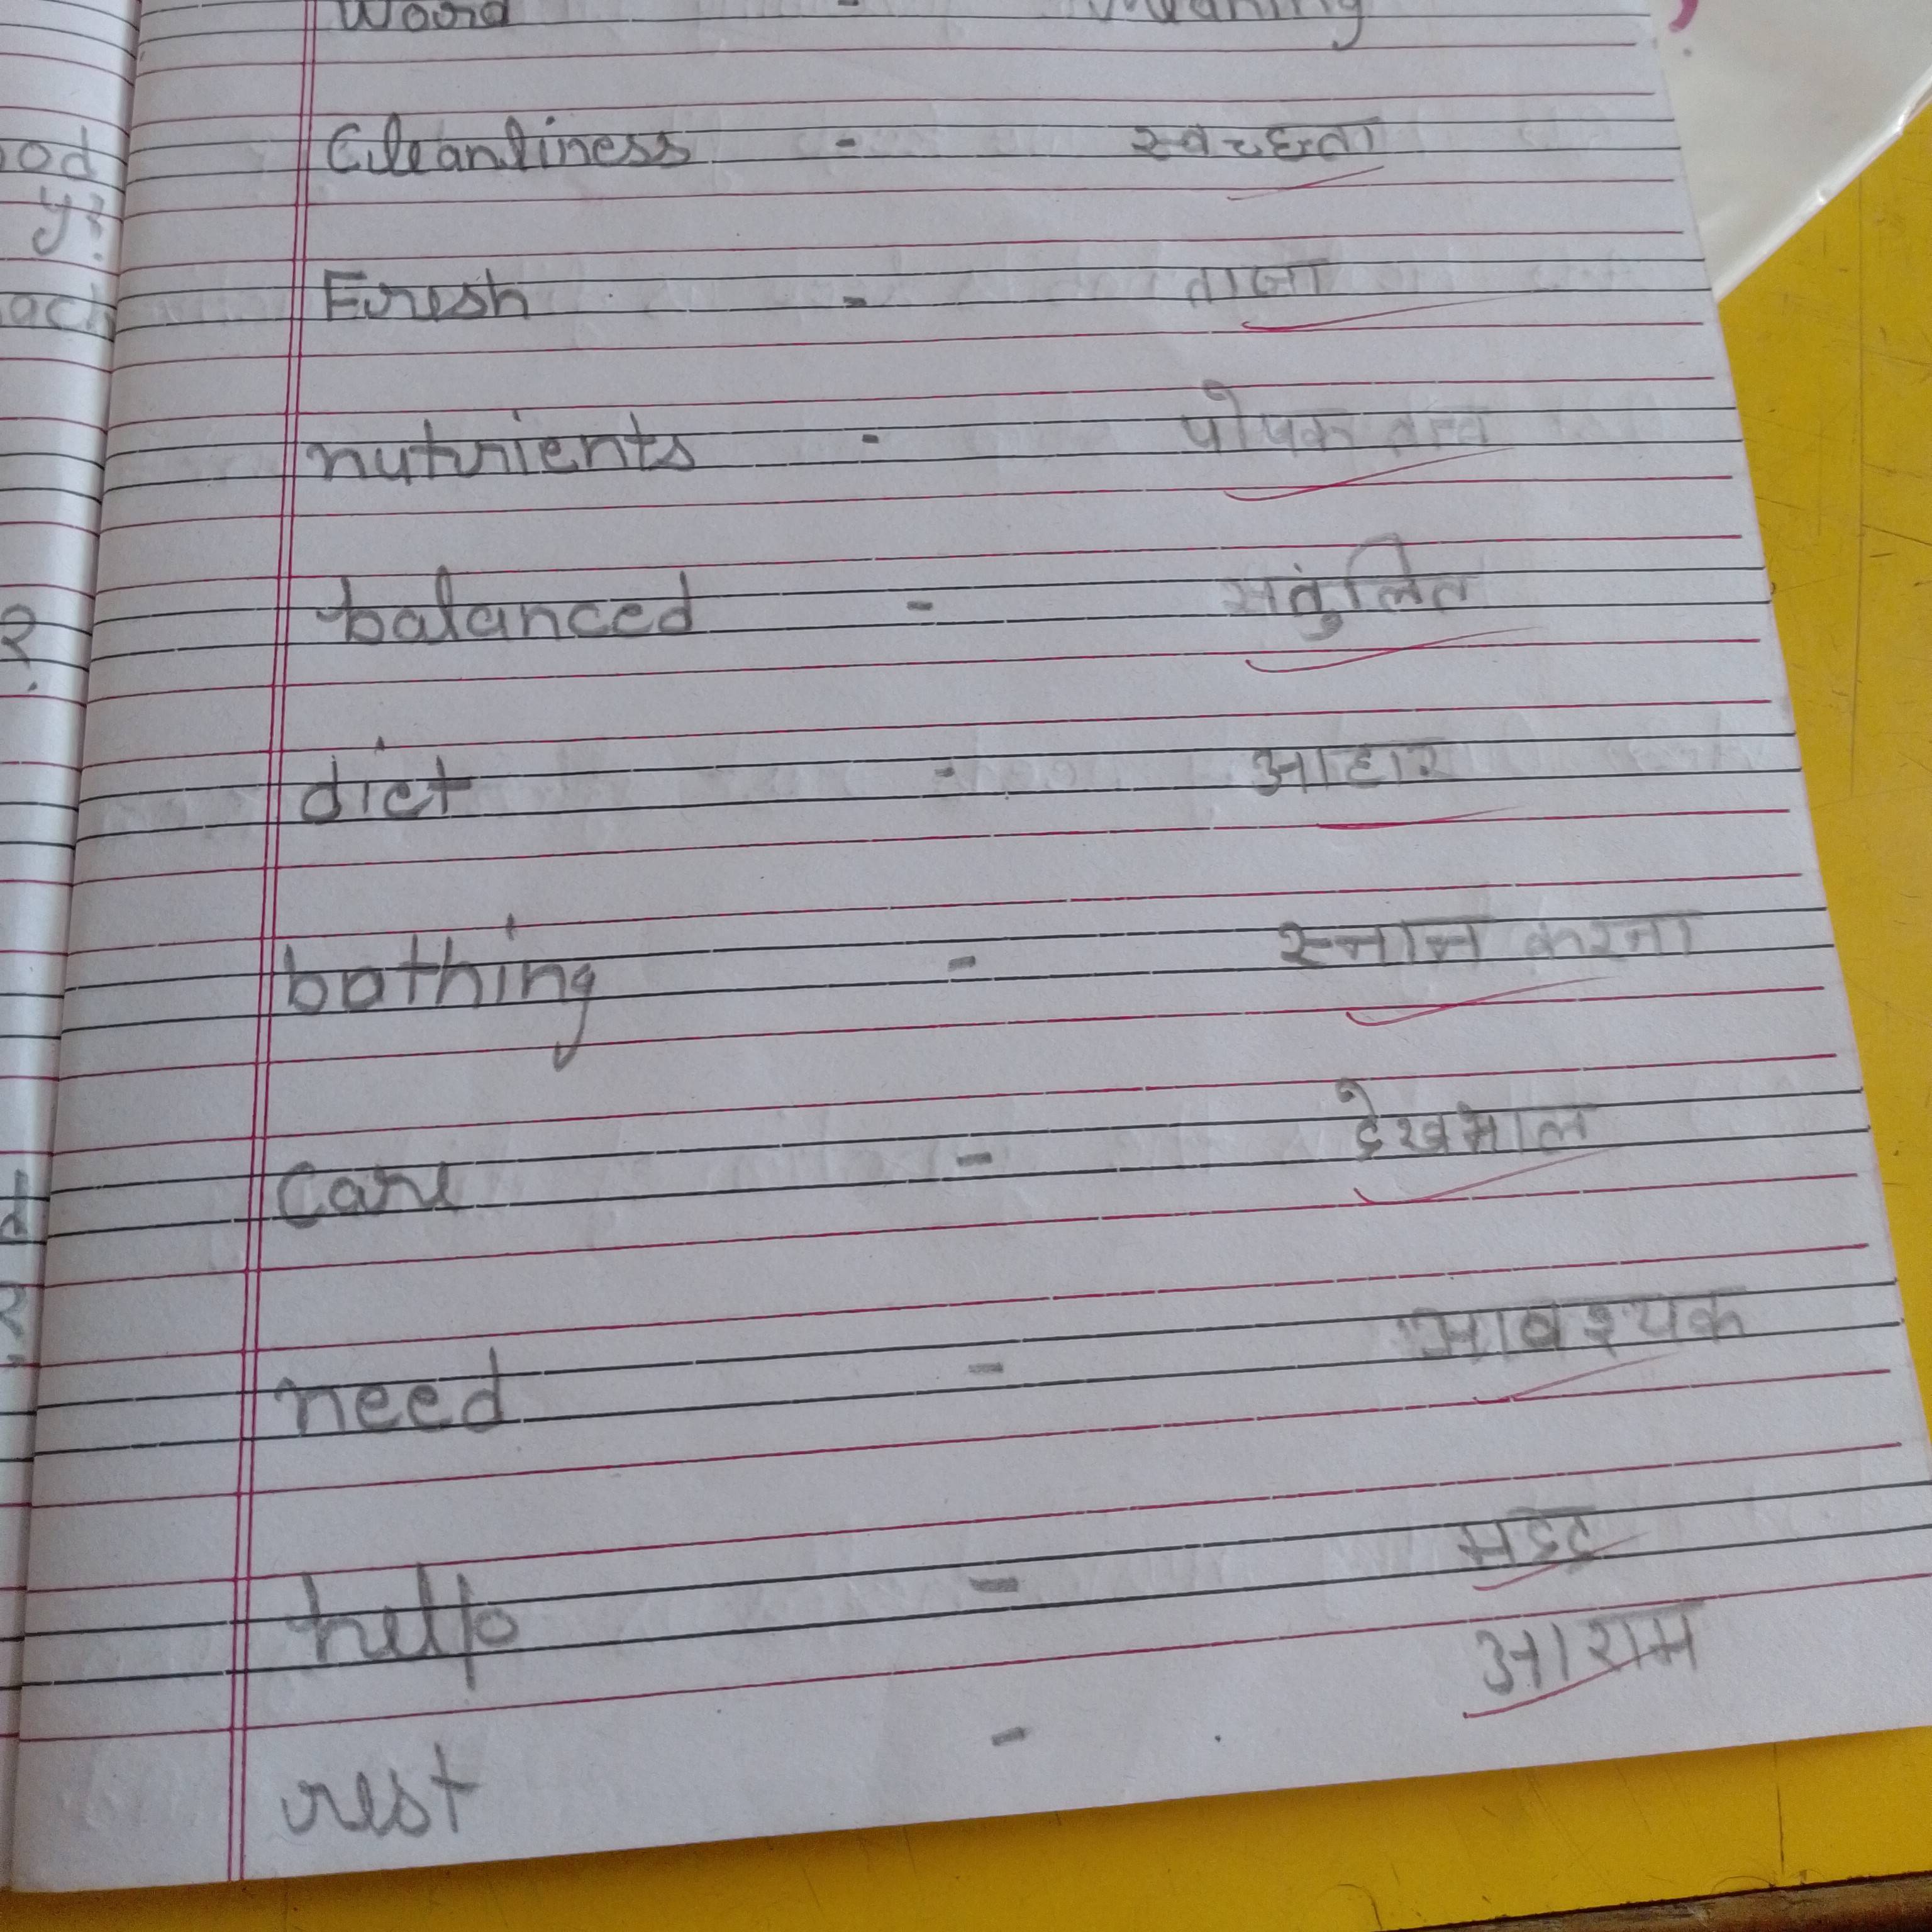 Word - Meaning
Cleanliness - स्वच्छता
Fresh - ताजा
nutrients - पोषक तत्व
balanced - संतुलित
diet - आहार
bathing - स्नान करना
Care - देखभाल
need - आवश्यक
help - मदद
rest - आराम